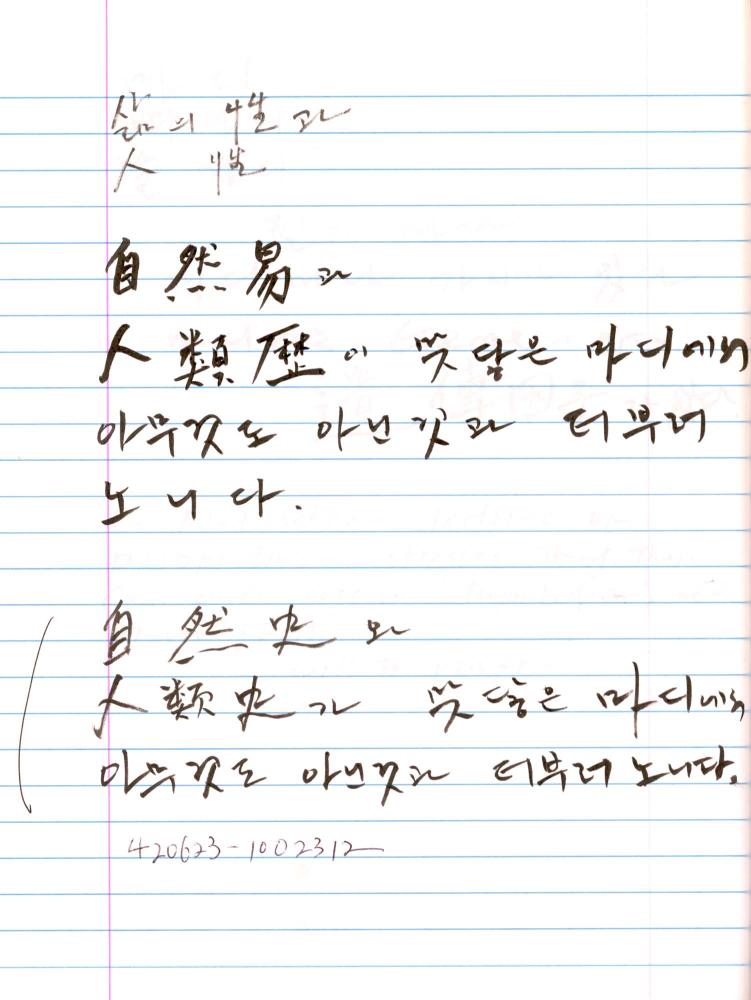 삶의 性과
人 性
自然易과
人類歷이 맞닿은 마디에서
아무것도 아닌것과 더부러
노니다.
自然史와
人類史가 맞닿은 마디에서
아무것도 아닌것과 더부러 노니다.
420623-1002312